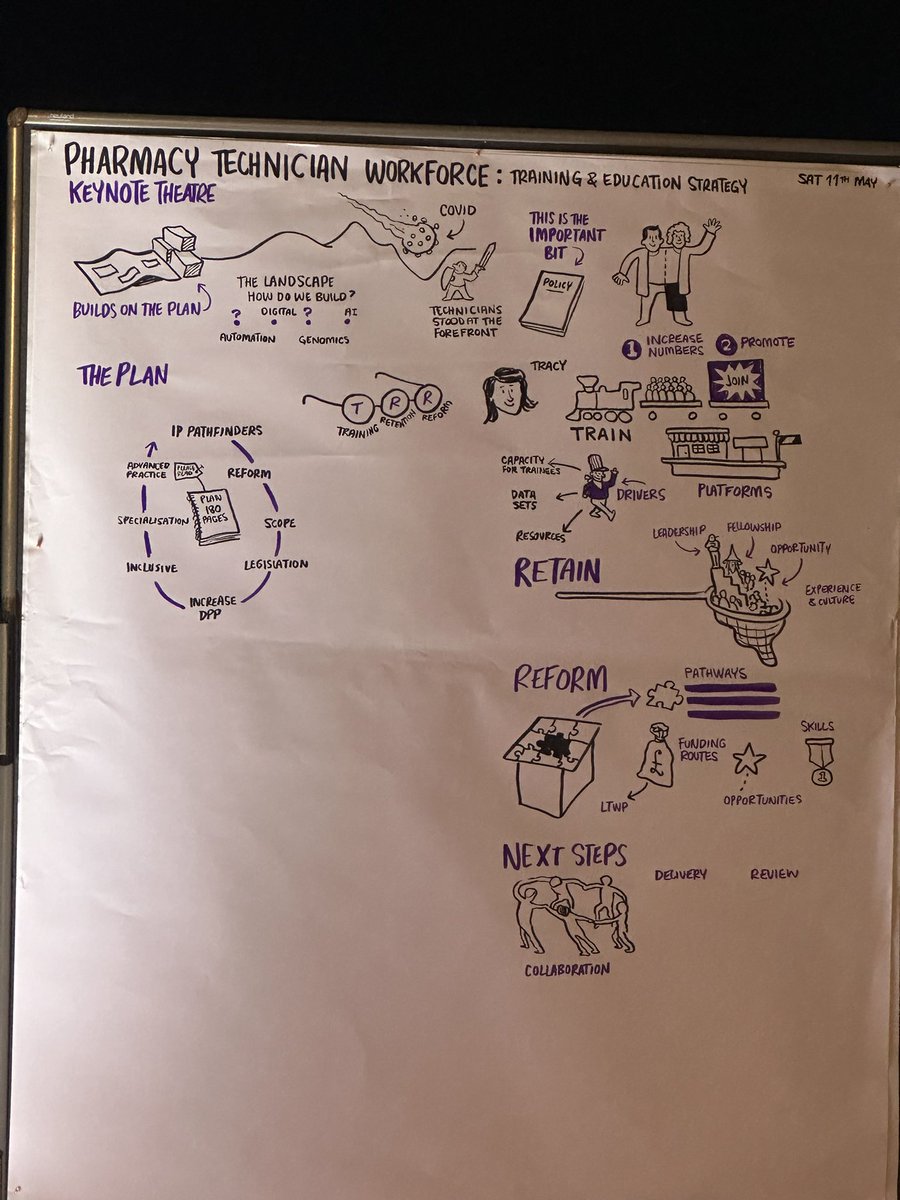 neuland
PHARMACY TECHNICIAN WORKFORCE: TRAINING & EDUCATION STRATEGY
SAT 11TH MAY
KEYNOTE THEATRE
BUILDS ON THE PLAN
THE LANDSCAPE
HOW DO WE BUILD?
? DIGITAL ? AI
AUTOMATION GENOMICS
COVID
TECHNICIANS
STOOD AT THE
FOREFRONT
THIS IS THE
IMPORTANT
BIT
POLICY
1 INCREASE
NUMBERS
2 PROMOTE
JOIN
THE PLAN
T R R
TRAINING RETENTION REFORM
TRACY
TRAIN
PLATFORMS
CAPACITY
FOR TRAINEES
DATA
SETS
RESOURCES
DRIVERS
IP PATHFINDERS
REFORM
SCOPE
LEGISLATION
INCREASE
DPP
INCLUSIVE
SPECIALISATION
ADVANCED
PRACTICE
PLEASE
READ
PLAN
180
PAGES
RETAIN
LEADERSHIP
FELLOWSHIP
OPPORTUNITY
EXPERIENCE
& CULTURE
REFORM
PATHWAYS
£
FUNDING
ROUTES
LTWP
OPPORTUNITIES
SKILLS
1
NEXT STEPS
DELIVERY
REVIEW
COLLABORATION